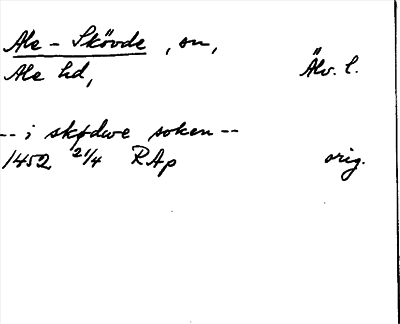 Ale-Skövde, sn,
Ale hd, Älv. l.
-- i skødwe soken --
1452 21/4 RAp orig.